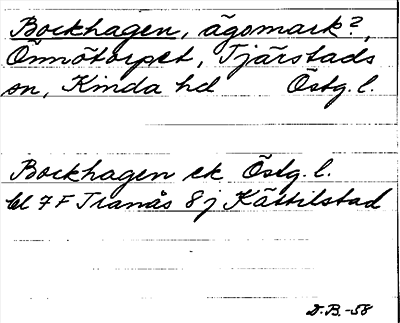 Bockhagen, ägomark?,
Önnötorpet, Tjärstads
sn, Kinda hd Östg. l.
Bockhagen ek Östg. l.
bl 7 F Tranås 8 j Kättilstad
D.B.-58